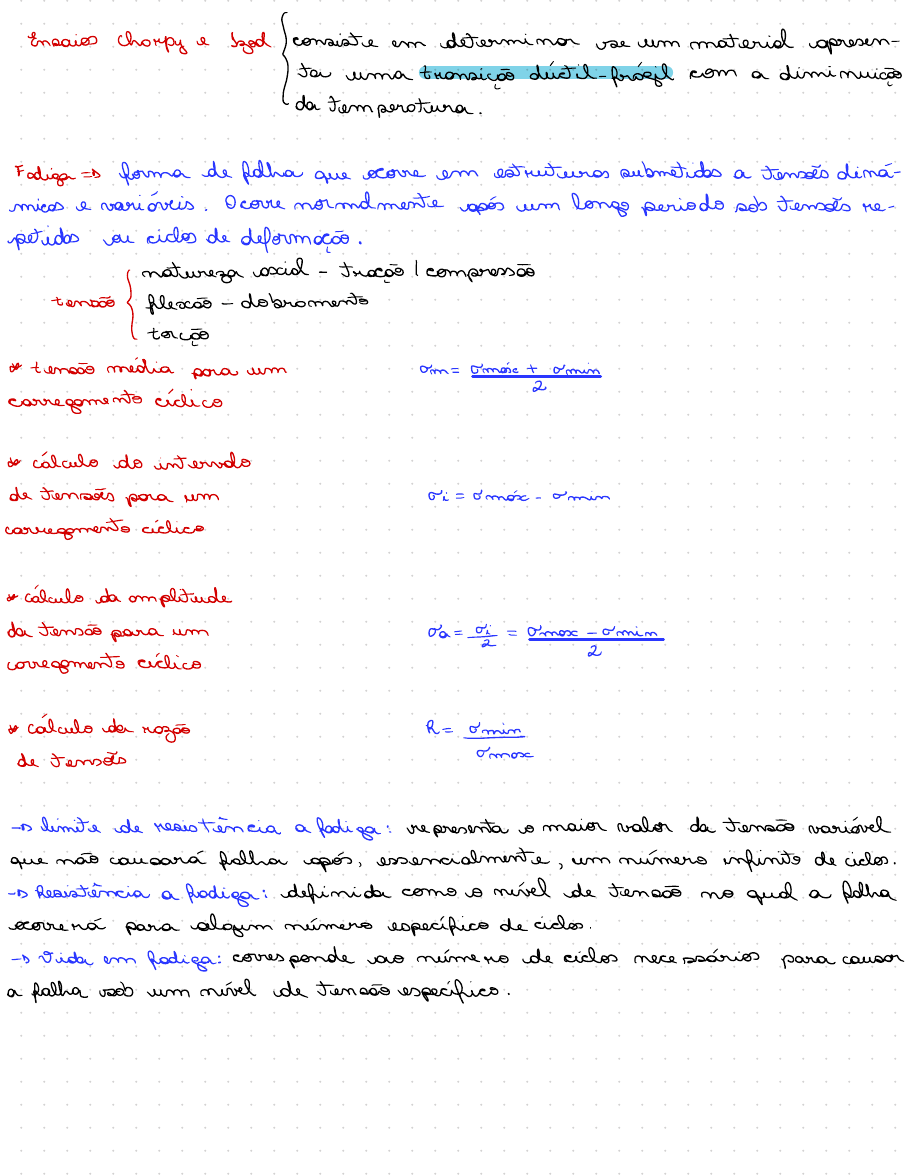 Ensaios Charpy e Izod { consiste em determinar se um material apresen-
ta uma transição dúctil-frágil com a diminuição
da temperatura.
Fadiga => forma de falha que ocorre em estruturas submetidas a tensões dinâ-
micas e variáveis. Ocorre normalmente após um longo periodo sob tensões re-
petidas ou ciclos de deformação.
natureza axial - tração | compressão
tensão { flexão - dobramento
torção
* tensão média para um σm = σmáx + σmin / 2
carregamento cíclico
* cálculo do intervalo
de tensões para um σi = σmáx - σmin
carregamento cíclico
* cálculo da amplitude
da tensão para um σa = σi / 2 = σmax - σmin / 2
carregamento cíclico
* cálculo da razão R = σmin / σmax
de tensões
→ limite de resistência a fadiga: representa o maior valor da tensão variável
que não causará falha após, essencialmente, um número infinito de ciclos.
→ Resistência a fadiga: definida como o nível de tensão no qual a falha
ocorrerá para algum número específico de ciclos.
→ Vida em fadiga: corresponde ao número de ciclos necessários para causar
a falha sob um nível de tensão específico.